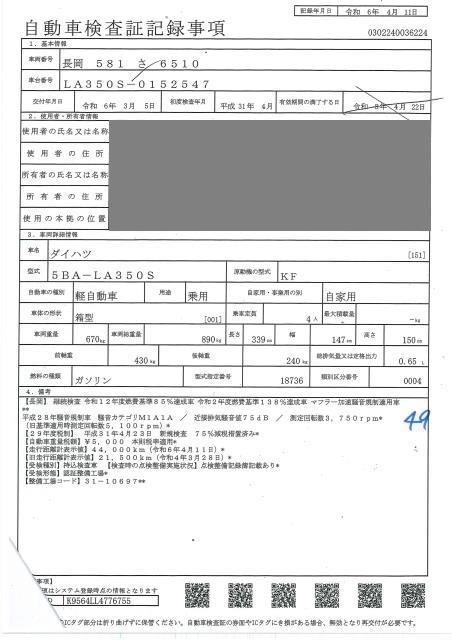 記録年月日 令和 6年 4月 11日
自動車検査証記録事項
0302240036224
1. 基本情報
車両番号 長岡 581 さ 6510
車台番号 LA350S-0152547
交付年月日 令和 6年 3月 5日 初度検査年月 平成 31年 4月 有効期間の満了する日 令和 8年 4月 22日
2. 使用者・所有者情報
使用者の氏名又は名称
使用者の住所
所有者の氏名又は名称
所有者の住所
使用の本拠の位置
3. 車両詳細情報
車名 ダイハツ [151]
型式 5BA-LA350S 原動機の型式 KF
自動車の種別 軽自動車 用途 乗用 自家用・事業用の別 自家用
車体の形状 箱型 [001] 乗車定員 4人 最大積載量 -kg
車両重量 670kg 車両総重量 890kg 長さ 339cm 幅 147cm 高さ 150cm
前軸重 430kg 後軸重 240kg 総排気量又は定格出力 0.65 L
燃料の種類 ガソリン 型式指定番号 18736 類別区分番号 0004
4. 備考
[長岡] 継続検査 令和12年度燃費基準85%達成車 令和2年度燃費基準138%達成車 マフラー加速騒音規制適用車
**
平成28年騒音規制車 騒音カテゴリM1A1A / 近接排気騒音値75dB / 測定回転数3,750rpm*
(旧基準適用時測定回転数5,100rpm)*
[29年度税制] 平成31年4月23日 新規検査 75%減税措置済み*
[自動車重量税額] ¥5,000 本則税率適用*
[走行距離計表示値] 44,000km (令和6年4月11日)*
[旧走行距離計表示値] 21,500km (令和4年3月28日)*
[受検種別] 持込検査車 [検査時の点検整備実施状況] 点検整備記録簿記載あり*
[受検形態] 認証整備工場*
[整備工場コード] 31-10697**
49
事項]
項はシステム登録時点の情報となります
D K9564LL4776755
のICタグ部分は折り曲げずに保管ください。自動車検査証の券面やICタグに毀損がある場合、無効となり再交付が必要です。